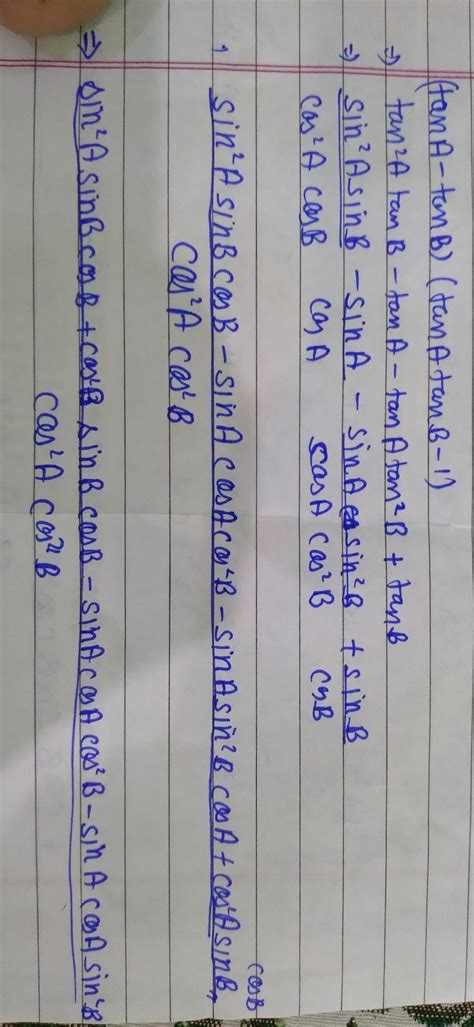 (tanA - tanB) (tanA tanB - 1)
⇒ tan²A tanB - tanA - tanA tan²B + tanB
⇒ sin²A sinB - sinA - sinA sin²B + sinB
cos²A cosB cosA cosA cos²B cosB
, sin²A sinB cosB - sinA cosA cos²B - sinA sin²B cosA + cos²A sinB,, cosB
cos²A cos²B
⇒ sin²A sinB cosB + cos²B sinB cosB - sinA cosA cos²B - sinA cosA sin²B
cos²A cos²B